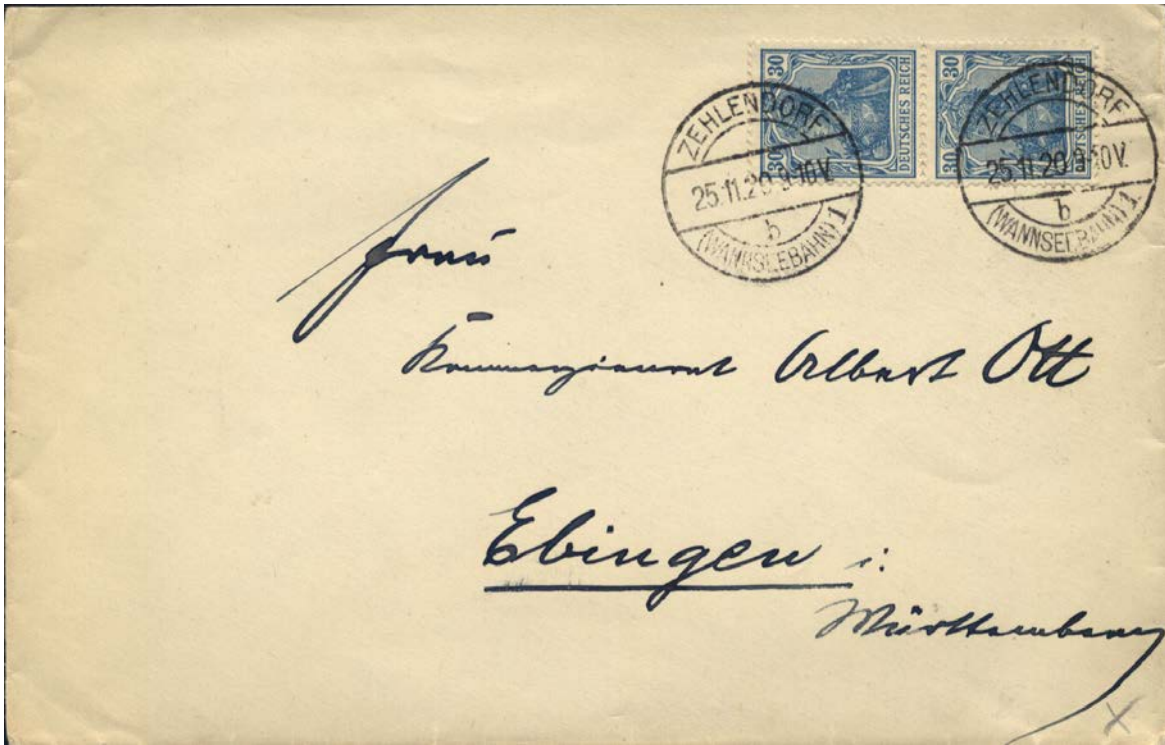 30 30 DEUTSCHES REICH
30 30 DEUTSCHES REICH
ZEHLENDORF
25.11.20.9-10V.
b
(WANNSEEBAHN) 1.
ZEHLENDORF
25.11.20.9-10V.
b
(WANNSEEBAHN) 1.
Frau
Kommerzienrat Albert Ott
Ebingen i:
Württemberg